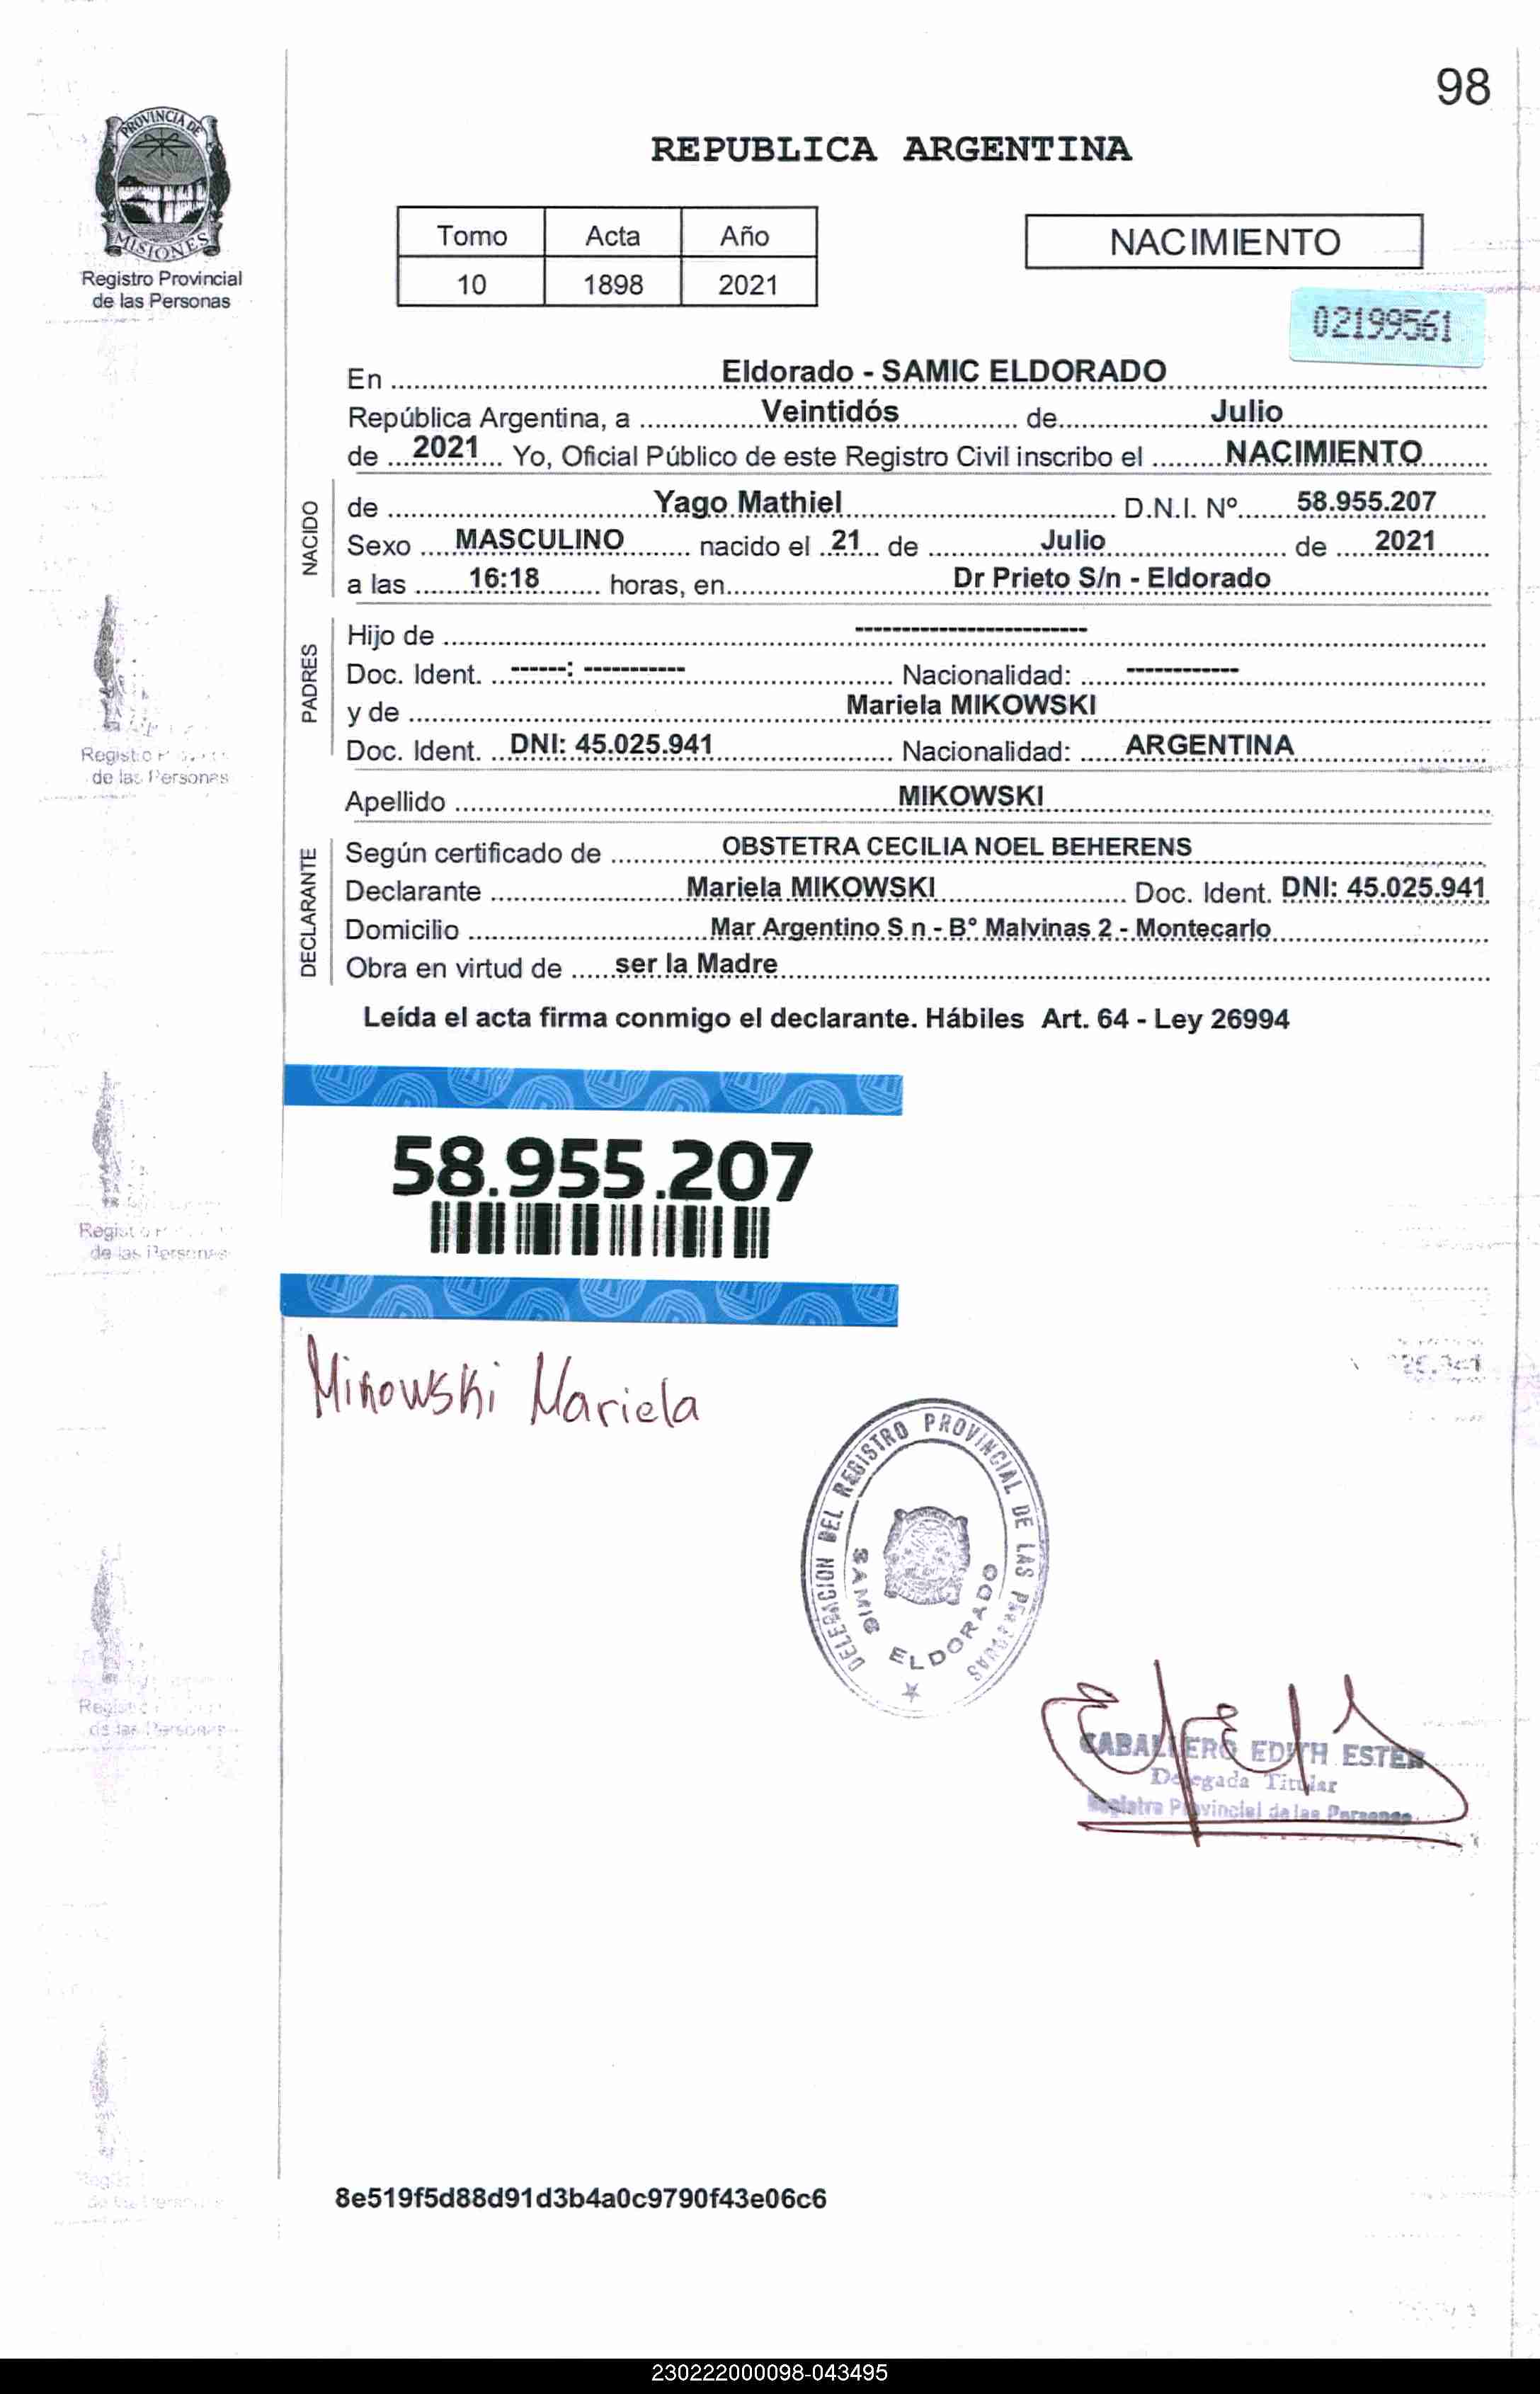 98
PROVINCIA DE
MISIONES
Registro Provincial
de las Personas
REPUBLICA ARGENTINA
Tomo Acta Año
10 1898 2021
NACIMIENTO
02199561
En Eldorado - SAMIC ELDORADO
República Argentina, a Veintidós de Julio
de 2021 Yo, Oficial Público de este Registro Civil inscribo el NACIMIENTO
NACIDO
de Yago Mathiel D.N.I. Nº 58.955.207
Sexo MASCULINO nacido el 21 de Julio de 2021
a las 16:18 horas, en Dr Prieto S/n - Eldorado
PADRES
Hijo de -------------------------
Doc. Ident. ------: ----------- Nacionalidad: ------------
y de Mariela MIKOWSKI
Doc. Ident. DNI: 45.025.941 Nacionalidad: ARGENTINA
Apellido MIKOWSKI
DECLARANTE
Según certificado de OBSTETRA CECILIA NOEL BEHERENS
Declarante Mariela MIKOWSKI Doc. Ident. DNI: 45.025.941
Domicilio Mar Argentino S n - B° Malvinas 2 - Montecarlo
Obra en virtud de ser la Madre
Leída el acta firma conmigo el declarante. Hábiles Art. 64 - Ley 26994
58.955.207
Mikowski Mariela
DELEGACION DEL REGISTRO PROVINCIAL DE LAS PERSONAS
SAMIC ELDORADO
CABALLERO EDITH ESTER
Delegada Titular
Registro Provincial de las Personas
8e519f5d88d91d3b4a0c9790f43e06c6
230222000098-043495